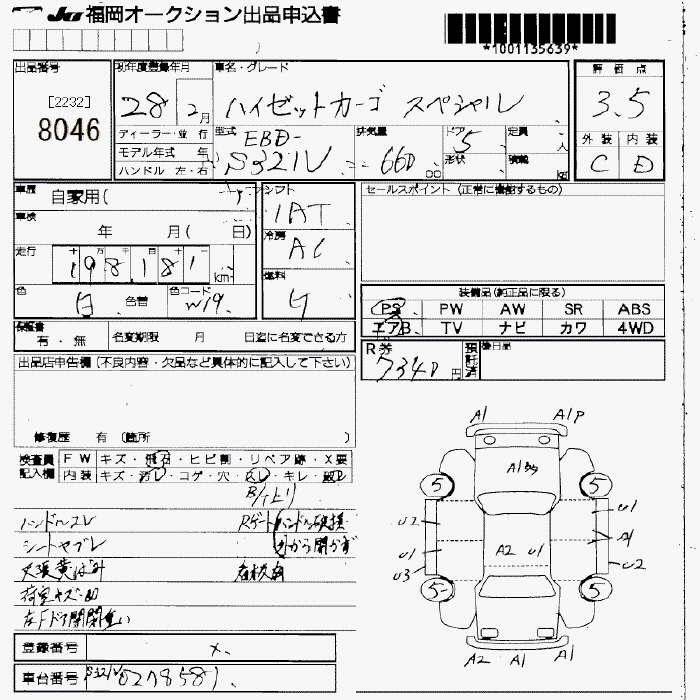 JU 福岡オークション出品申込書
*1001135639*
出品番号
[2232]
8046
初年度登録年月
28 2月
ディーラー・並行
モデル年式 年
ハンドル 左・右
車名・グレード
ハイゼットカーゴ スペシャル
型式
EBD-
S321V
排気量
660 cc
ドア
5
形状
定員
人
積載
kg
評価点
3.5
外装 内装
C D
車歴
自家用( )
車検
年 月( 日)
走行
十 万 千 百 十 一
198181 km
色
白
色替
色コード
W19
シフト
IAT
冷房
AC
燃料
G
セールスポイント (正常に機能するもの)
装備品(純正品に限る)
PS PW AW SR ABS
エアB TV ナビ カワ 4WD
保証書
有・無
名変期限 月 日迄に名変できる方
R券
7340円
預託済
後日品
出品店申告欄 (不良内容・欠品など具体的に記入して下さい)
修復歴 有 (箇所 )
検査員記入欄
FW キズ・飛石・ヒビ割・リペア跡・X要
内装 キズ・汚レ・コゲ・穴・スレ・キレ・破レ
ハンドルスレ
シートヤブレ
天張黄ばみ
荷室キズ・凹
左Fドア開閉重い
Rゲートハンドル破損
外から開かず
A1 A1P
5 5
U2 U1
U1 A1
U3 U2
A2 U1
5 5
A2 A1 A1
登録番号
×
車台番号
S321V 0278581